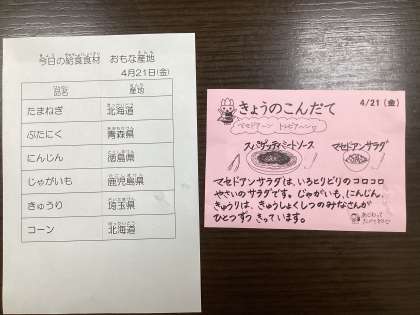 今日の給食食材　おもな産地
4月21日(金)
品名　産地
たまねぎ　北海道
ぶたにく　青森県
にんじん　徳島県
じゃがいも　鹿児島県
きゅうり　埼玉県
コーン　北海道
4/21(金)
きょうのこんだて
スパゲッティミートソース　マセドアンサラダ
マセドアンサラダは、いろとりどりのコロコロ
やさいのサラダです。じゃがいも、にんじん、
きゅうりは、きゅうしょくしつのみなさんが
ひとつずつ きっています。